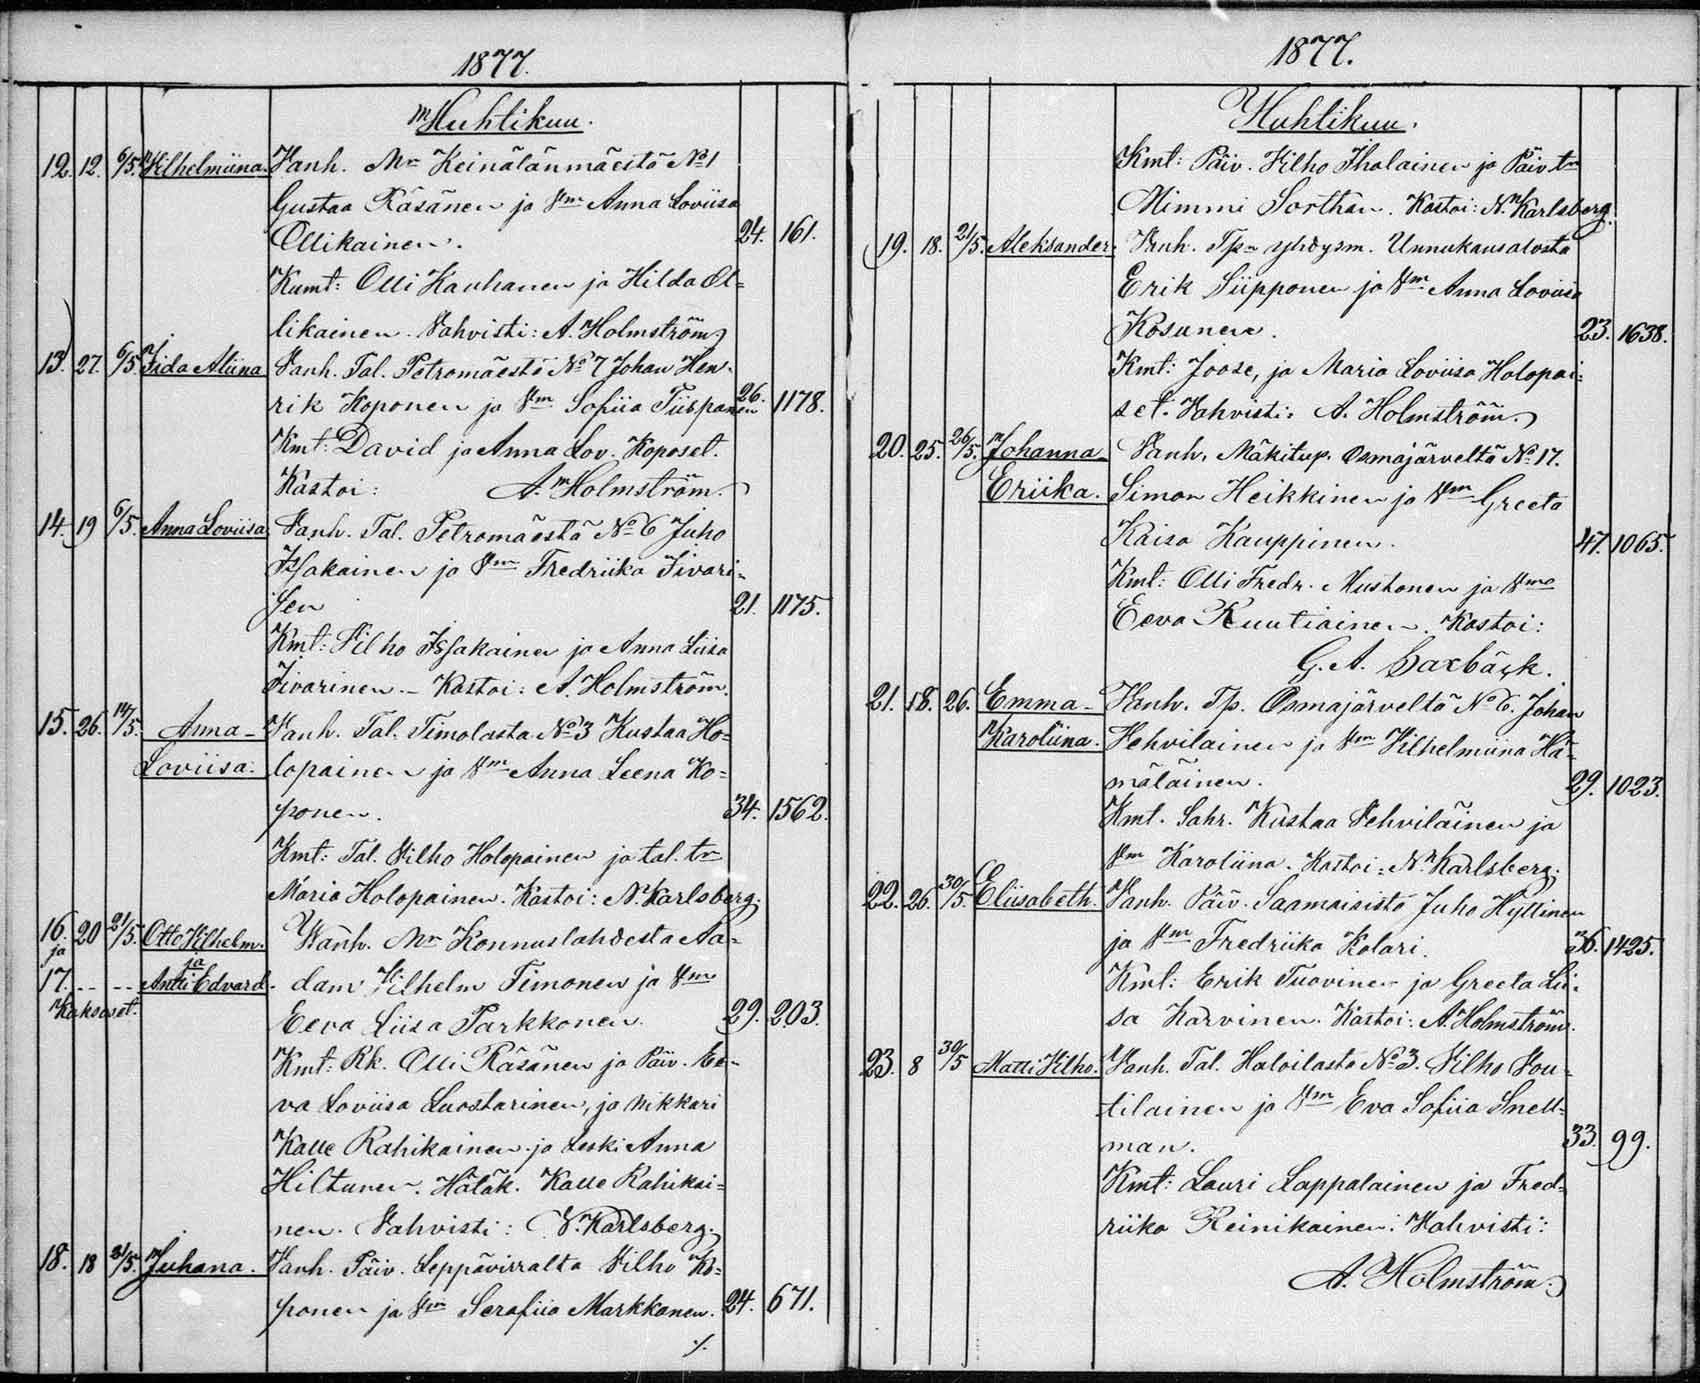 1877.
Huhtikuu.
12. 12. 6/5. Vilhelmiina. Vanh. Mr Keinälänmäestä No 1
Gustaa Räsänen ja Vm Anna Loviisa
Ollikainen. 24. 161.
Kumt: Olli Kauhanen ja Hilda Ol=
likainen. Vahvisti: A. Holmström
13. 27. 6/5. Iida Aliina Vanh. Tal. Petromäestä No 7 Johan Hen-
rik Koponen ja Vm Sofiia Tiispanen 26. 1178.
Kmt: David ja Anna Lov. Koposet.
Kastoi: A. Holmström.
14. 19 6/5. Anna Loviisa Vanh. Tal. Petromäestä No 6 Juho
Issakainen ja Vm Fredriika Iivari-
sen 21. 1175.
Kmt: Vilho Issakainen ja Anna Liisa
Iivarinen. - Kastoi: A. Holmström.
15. 26. 14/5. Anna- Vanh. Tal. Timolasta No 3 Kustaa Ho-
Loviisa. lopainen ja Vm Anna Leena Ko=
ponen. 34. 1562.
Kmt: Tal. Vilho Holopainen ja tal. tr
Maria Holopainen. Kastoi: N. Karlsberg.
16. 20 21/5. Otto Vilhelm. Vanh. Mr Konnuslahdesta Aa=
ja ja
17. - - - - Antti Edvard. dam Vilhelm Timonen ja Vm
Kaksoset. Eeva Liisa Parkkonen. 29. 203.
Kmt: Rk. Olli Räsänen ja Päiv. Ee-
va Loviisa Luostarinen, ja nikkari
Kalle Rahikainen ja Leski Anna
Hiltunen. Hätäk. Kalle Rahikai=
nen. Vahvisti: N. Karlsberg.
18. 18 21/5. Juhana. Vanh. Päiv. Leppävirralta Vilho Ko=
ponen ja Vm Serafiia Markkanen. 24. 671.
./.
1877.
Huhtikuu.
Kmt: Päiv. Vilho Iholainen ja Päiv. tr
Mimmi Sorthan. Kastoi: N. Karlsberg.
19. 18. 21/5. Aleksander. Vanh. Tp-n yhdysm. Unnukansalosta
Erik Siipponen ja Vm Anna Loviisa
Kosunen. 23. 1638.
Kmt: Joose, ja Maria Loviisa Holopai=
set. Vahvisti: A. Holmström.
20. 25. 26/5. Johanna- Vanh. Mäkitup. Osmajärveltä No 17.
Eriika. Simon Heikkinen ja Vm Greeta
Kaisa Kauppinen. 47. 1065.
Kmt: Olli Fredr. Mustonen ja Vmo
Eeva Ruutiainen. Kastoi:
G. A. Saxbäck.
21. 18. 26. Emma- Vanh. Tp. Osmajärveltä No 6. Johan
Karoliina. Vehviläinen ja Vm Vilhelmiina Hä-
mäläinen. 29. 1023.
Kmt. Sahr. Kustaa Vehviläinen ja
Vm Karoliina. Kastoi: N. Karlsberg.
22. 26. 30/5. Eliisabeth. Vanh. Päiv. Saamaisista Juho Hyttinen
ja Vm Fredriika Kolari. 36. 1425.
Kmt: Erik Tuovinen ja Greeta Lii-
sa Karvinen. Kastoi: A. Holmström.
23. 8 30/5 Matti Vilho. Vanh. Tal. Haloilasta No 3. Vilho Vou-
tilainen ja Vm Eva Sofiia Snell=
man. 33. 99.
Kmt: Lauri Lappalainen ja Fred=
riika Reinikainen. Vahvisti:
A. Holmström